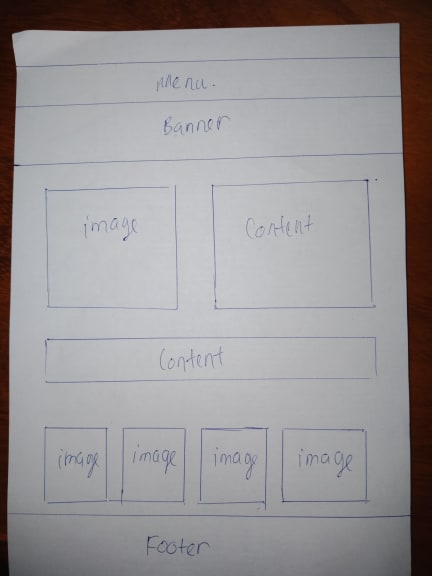 Menu.
Banner
image
Content
Content
image image image image
Footer